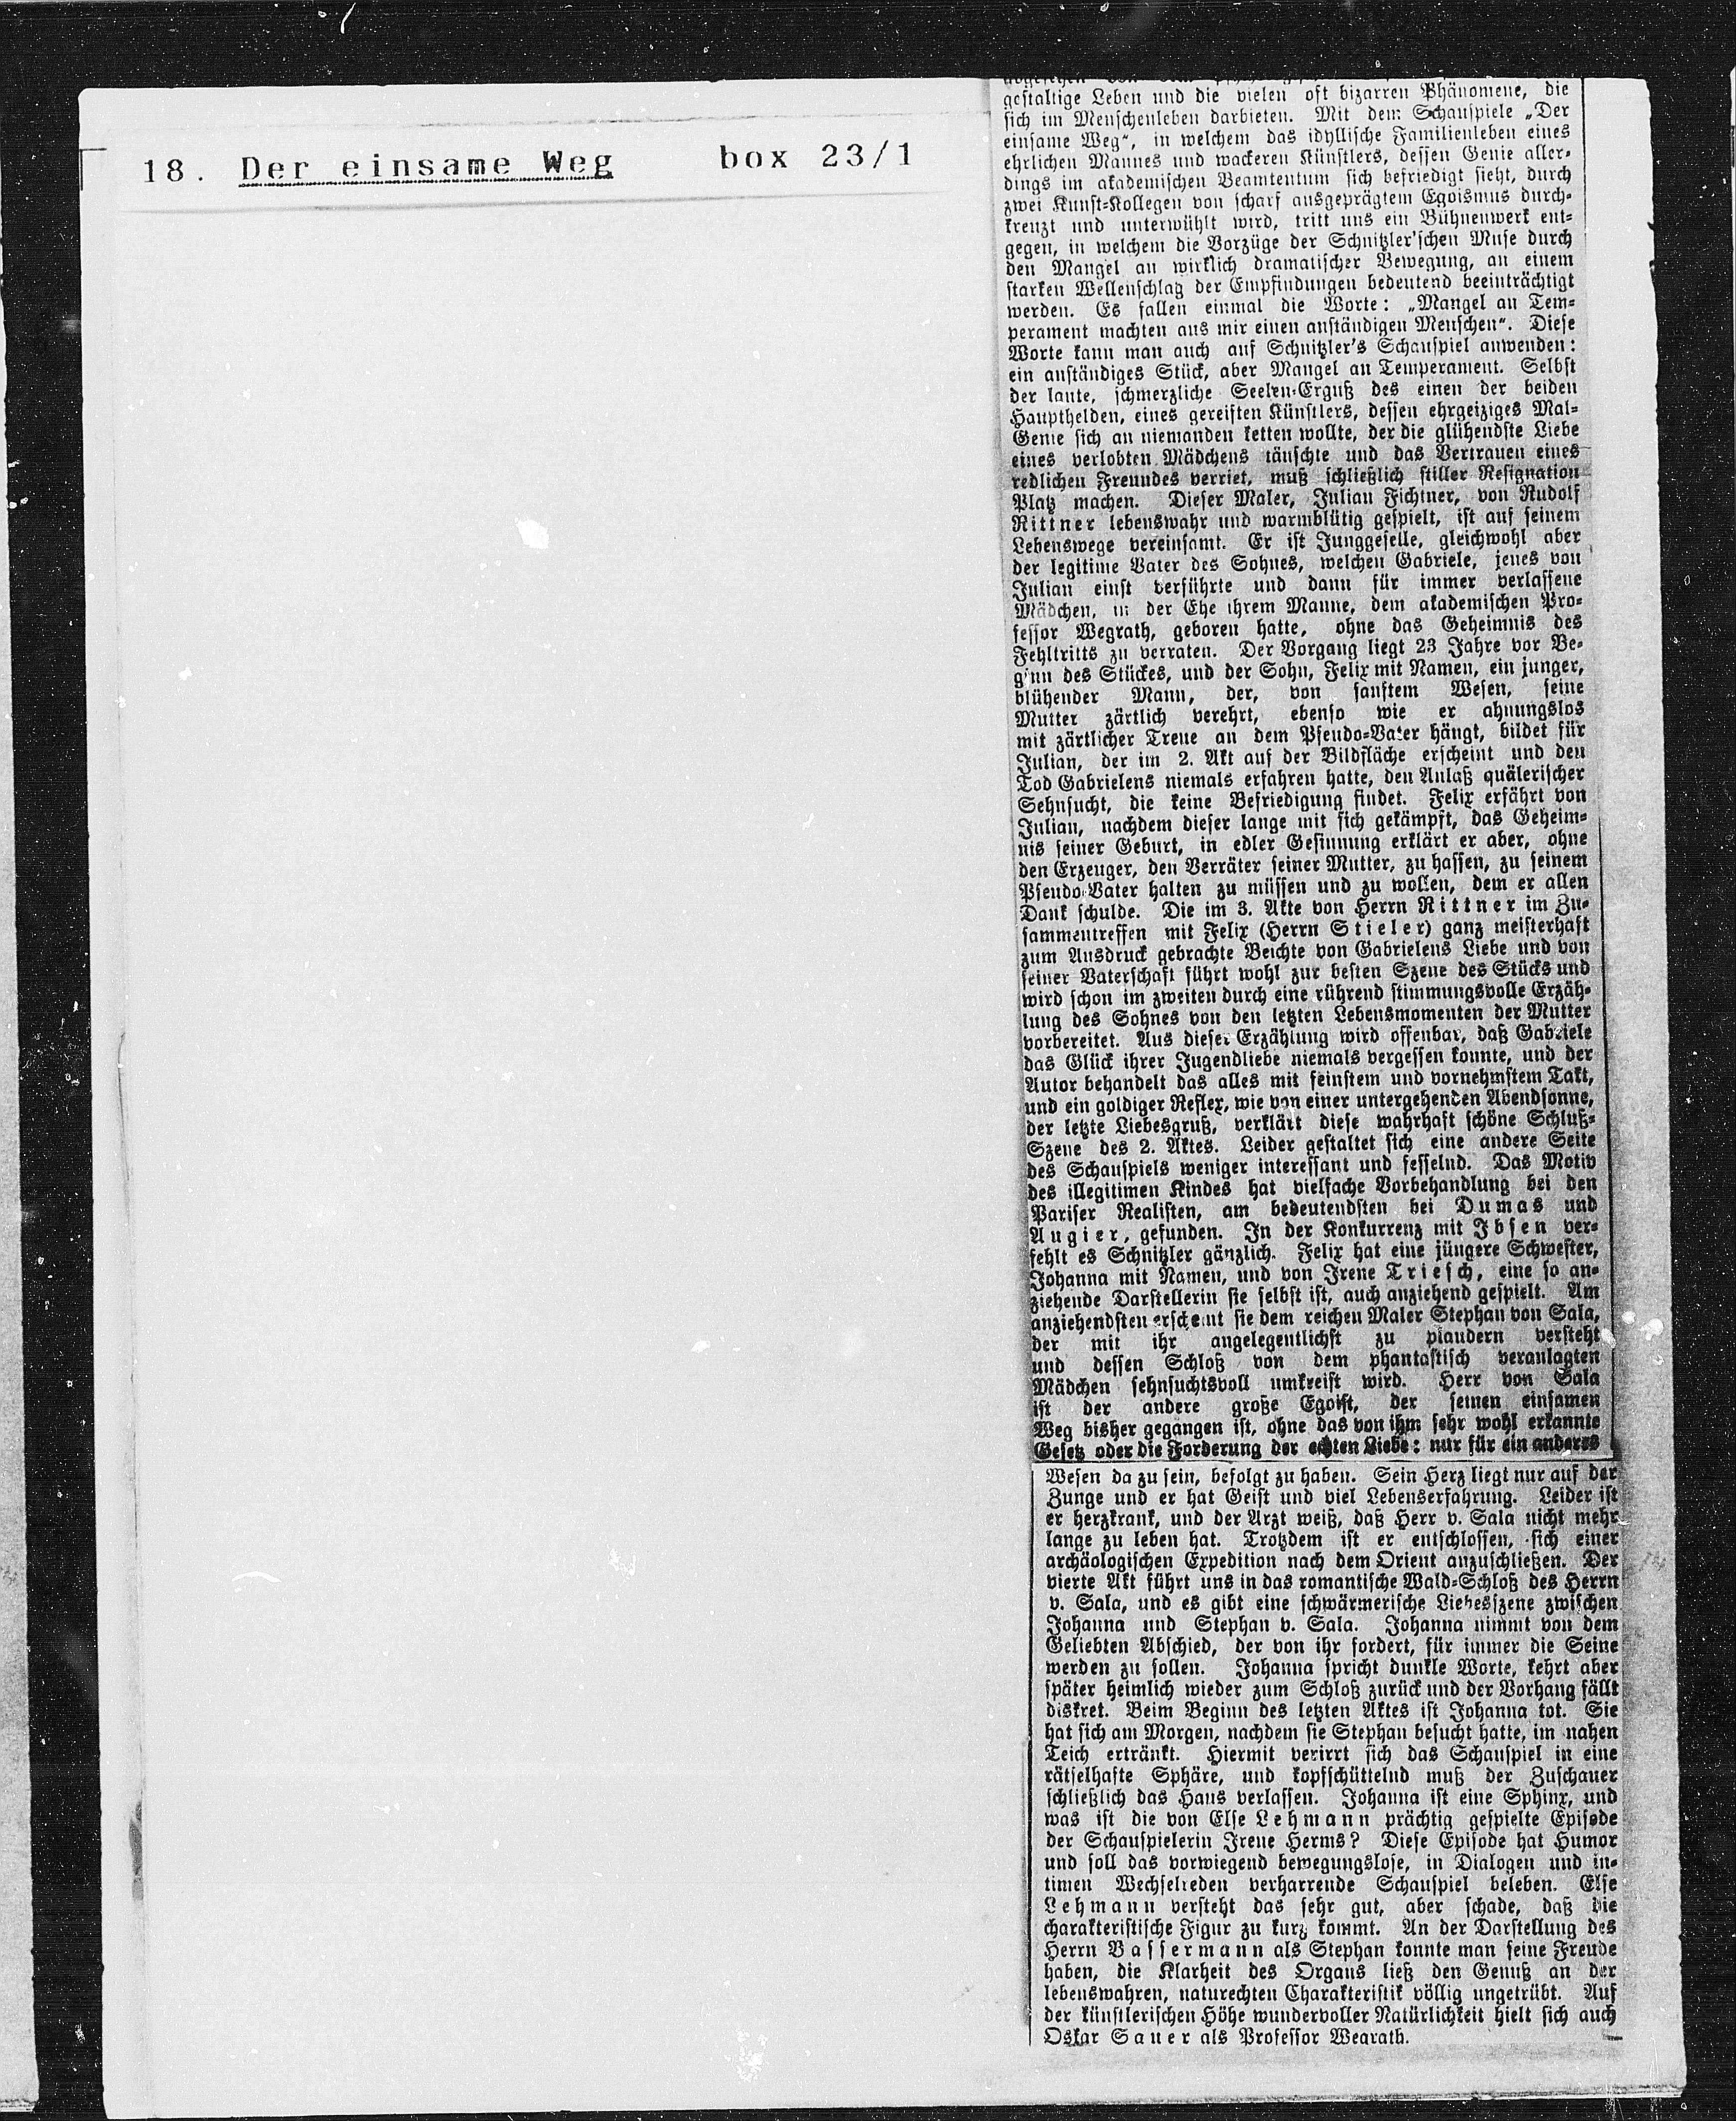 18. Der einsame Weg box 23/1
gestaltige Leben und die vielen oft bizarren Phänomene, die
sich im Menschenleben darbieten. Mit dem Schauspiele „Der
einsame Weg“, in welchem das idyllische Familienleben eines
ehrlichen Mannes und wackeren Künstlers, dessen Genie aller-
dings im akademischen Beamtentum sich befriedigt sieht, durch
zwei Kunst-Kollegen von scharf ausgeprägtem Egoismus durch-
kreuzt und unterwühlt wird, tritt uns ein Bühnenwerk ent-
gegen, in welchem die Vorzüge der Schnitzler'schen Muse durch
den Mangel an wirklich dramatischer Bewegung, an einem
starken Wellenschlag der Empfindungen bedeutend beeinträchtigt
werden. Es fallen einmal die Worte: „Mangel an Tem-
perament machten aus mir einen anständigen Menschen“. Diese
Worte kann man auch auf Schnitzler's Schauspiel anwenden:
ein anständiges Stück, aber Mangel an Temperament. Selbst
der laute, schmerzliche Seelen-Erguß des einen der beiden
Haupthelden, eines gereiften Künstlers, dessen ehrgeiziges Mal-
Genie sich an niemanden ketten wollte, der die glühendste Liebe
eines verlobten Mädchens täuschte und das Vertrauen eines
redlichen Freundes verriet, muß schließlich stiller Resignation
Platz machen. Dieser Maler, Julian Fichtner, von Rudolf
Rittner lebenswahr und warmblütig gespielt, ist auf seinem
Lebenswege vereinsamt. Er ist Junggeselle, gleichwohl aber
der legitime Vater des Sohnes, welchen Gabriele, jenes von
Julian einst verführte und dann für immer verlassene
Mädchen, in der Ehe ihrem Manne, dem akademischen Pro-
fessor Wegrath, geboren hatte, ohne das Geheimnis des
Fehltritts zu verraten. Der Vorgang liegt 23 Jahre vor Be-
ginn des Stückes, und der Sohn, Felix mit Namen, ein junger,
blühender Mann, der, von sanftem Wesen, seine
Mutter zärtlich verehrt, ebenso wie er ahnungslos
mit zärtlicher Treue an dem Pseudo-Vater hängt, bildet für
Julian, der im 2. Akt auf der Bildfläche erscheint und den
Tod Gabrielens niemals erfahren hatte, den Anlaß quälerischer
Sehnsucht, die keine Befriedigung findet. Felix erfährt von
Julian, nachdem dieser lange mit sich gekämpft, das Geheim-
nis seiner Geburt, in edler Gesinnung erklärt er aber, ohne
den Erzeuger, den Verräter seiner Mutter, zu hassen, zu seinem
Pseudo-Vater halten zu müssen und zu wollen, dem er allen
Dank schulde. Die im 3. Akte von Herrn Rittner im Zu-
sammentreffen mit Felix (Herrn Stieler) ganz meisterhaft
zum Ausdruck gebrachte Beichte von Gabrielens Liebe und von
seiner Vaterschaft führt wohl zur besten Szene des Stücks und
wird schon im zweiten durch eine rührend stimmungsvolle Erzäh-
lung des Sohnes von den letzten Lebensmomenten der Mutter
vorbereitet. Aus dieser Erzählung wird offenbar, daß Gabriele
das Glück ihrer Jugendliebe niemals vergessen konnte, und der
Autor behandelt das alles mit feinstem und vornehmstem Takt,
und ein goldiger Reflex, wie von einer untergehenden Abendsonne,
der letzte Liebesgruß, verklärt diese wahrhaft schöne Schluß-
Szene des 2. Aktes. Leider gestaltet sich eine andere Seite
des Schauspiels weniger interessant und fesselnd. Das Motiv
des illegitimen Kindes hat vielfache Vorbehandlung bei den
Pariser Realisten, am bedeutendsten bei Dumas und
Augier, gefunden. In der Konkurrenz mit Ibsen ver-
fehlt es Schnitzler gänzlich. Felix hat eine jüngere Schwester,
Johanna mit Namen, und von Irene Triesch, eine so an-
ziehende Darstellerin sie selbst ist, auch anziehend gespielt. Am
anziehendsten erscheint sie dem reichen Maler Stephan von Sala,
der mit ihr angelegentlichst zu plaudern versteht
und dessen Schloß von dem phantastisch veranlagten
Mädchen sehnsuchtsvoll umkreist wird. Herr von Sala
ist der andere große Egoist, der seinen einsamen
Weg bisher gegangen ist, ohne das von ihm sehr wohl erkannte
Gesetz oder die Forderung der echten Liebe: nur für ein anderes
Wesen da zu sein, befolgt zu haben. Sein Herz liegt nur auf der
Zunge und er hat Geist und viel Lebenserfahrung. Leider ist
er herzkrank, und der Arzt weiß, daß Herr v. Sala nicht mehr
lange zu leben hat. Trotzdem ist er entschlossen, sich einer
archäologischen Expedition nach dem Orient anzuschließen. Der
vierte Akt führt uns in das romantische Wald-Schloß des Herrn
v. Sala, und es gibt eine schwärmerische Liebesszene zwischen
Johanna und Stephan v. Sala. Johanna nimmt von dem
Geliebten Abschied, der von ihr fordert, für immer die Seine
werden zu sollen. Johanna spricht dunkle Worte, kehrt aber
später heimlich wieder zum Schloß zurück und der Vorhang fällt
diskret. Beim Beginn des letzten Aktes ist Johanna tot. Sie
hat sich am Morgen, nachdem sie Stephan besucht hatte, im nahen
Teich ertränkt. Hiermit verirrt sich das Schauspiel in eine
rätselhafte Sphäre, und kopfschüttelnd muß der Zuschauer
schließlich das Haus verlassen. Johanna ist eine Sphinx, und
was ist die von Else Lehmann prächtig gespielte Episode
der Schauspielerin Irene Herms? Diese Episode hat Humor
und soll das vorwiegend bewegungslose, in Dialogen und in-
timen Wechselreden verharrende Schauspiel beleben. Else
Lehmann versteht das sehr gut, aber schade, daß die
charakteristische Figur zu kurz kommt. An der Darstellung des
Herrn Bassermann als Stephan konnte man seine Freude
haben, die Klarheit des Organs ließ den Genuß an der
lebenswahren, naturechten Charakteristik völlig ungetrübt. Auf
der künstlerischen Höhe wundervoller Natürlichkeit hielt sich auch
Oskar Sauer als Professor Wegrath.